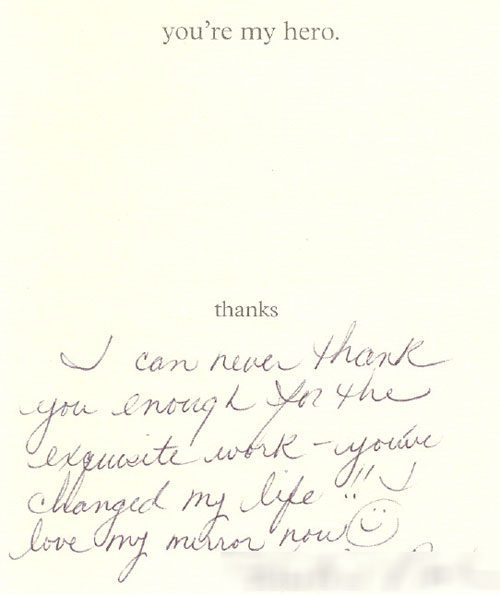 you're my hero.
thanks
I can never thank
you enough for the
exquisite work - you've
changed my life!! I
love my mirror now